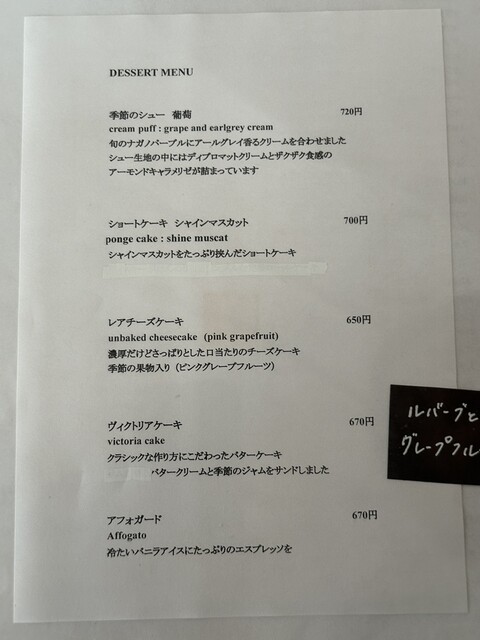 DESSERT MENU
季節のシュー 葡萄 720円
cream puff : grape and earlgrey cream
旬のナガノパープルにアールグレイ香るクリームを合わせました
シュー生地の中にはディプロマットクリームとザクザク食感の
アーモンドキャラメリゼが詰まっています
ショートケーキ シャインマスカット 700円
ponge cake : shine muscat
シャインマスカットをたっぷり挟んだショートケーキ
レアチーズケーキ 650円
unbaked cheesecake (pink grapefruit)
濃厚だけどさっぱりとした口当たりのチーズケーキ
季節の果物入り（ピンクグレープフルーツ）
ヴィクトリアケーキ 670円
victoria cake
クラシックな作り方にこだわったバターケーキ
バタークリームと季節のジャムをサンドしました
ルバーブと
グレープフル
アフォガード 670円
Affogato
冷たいバニラアイスにたっぷりのエスプレッソを